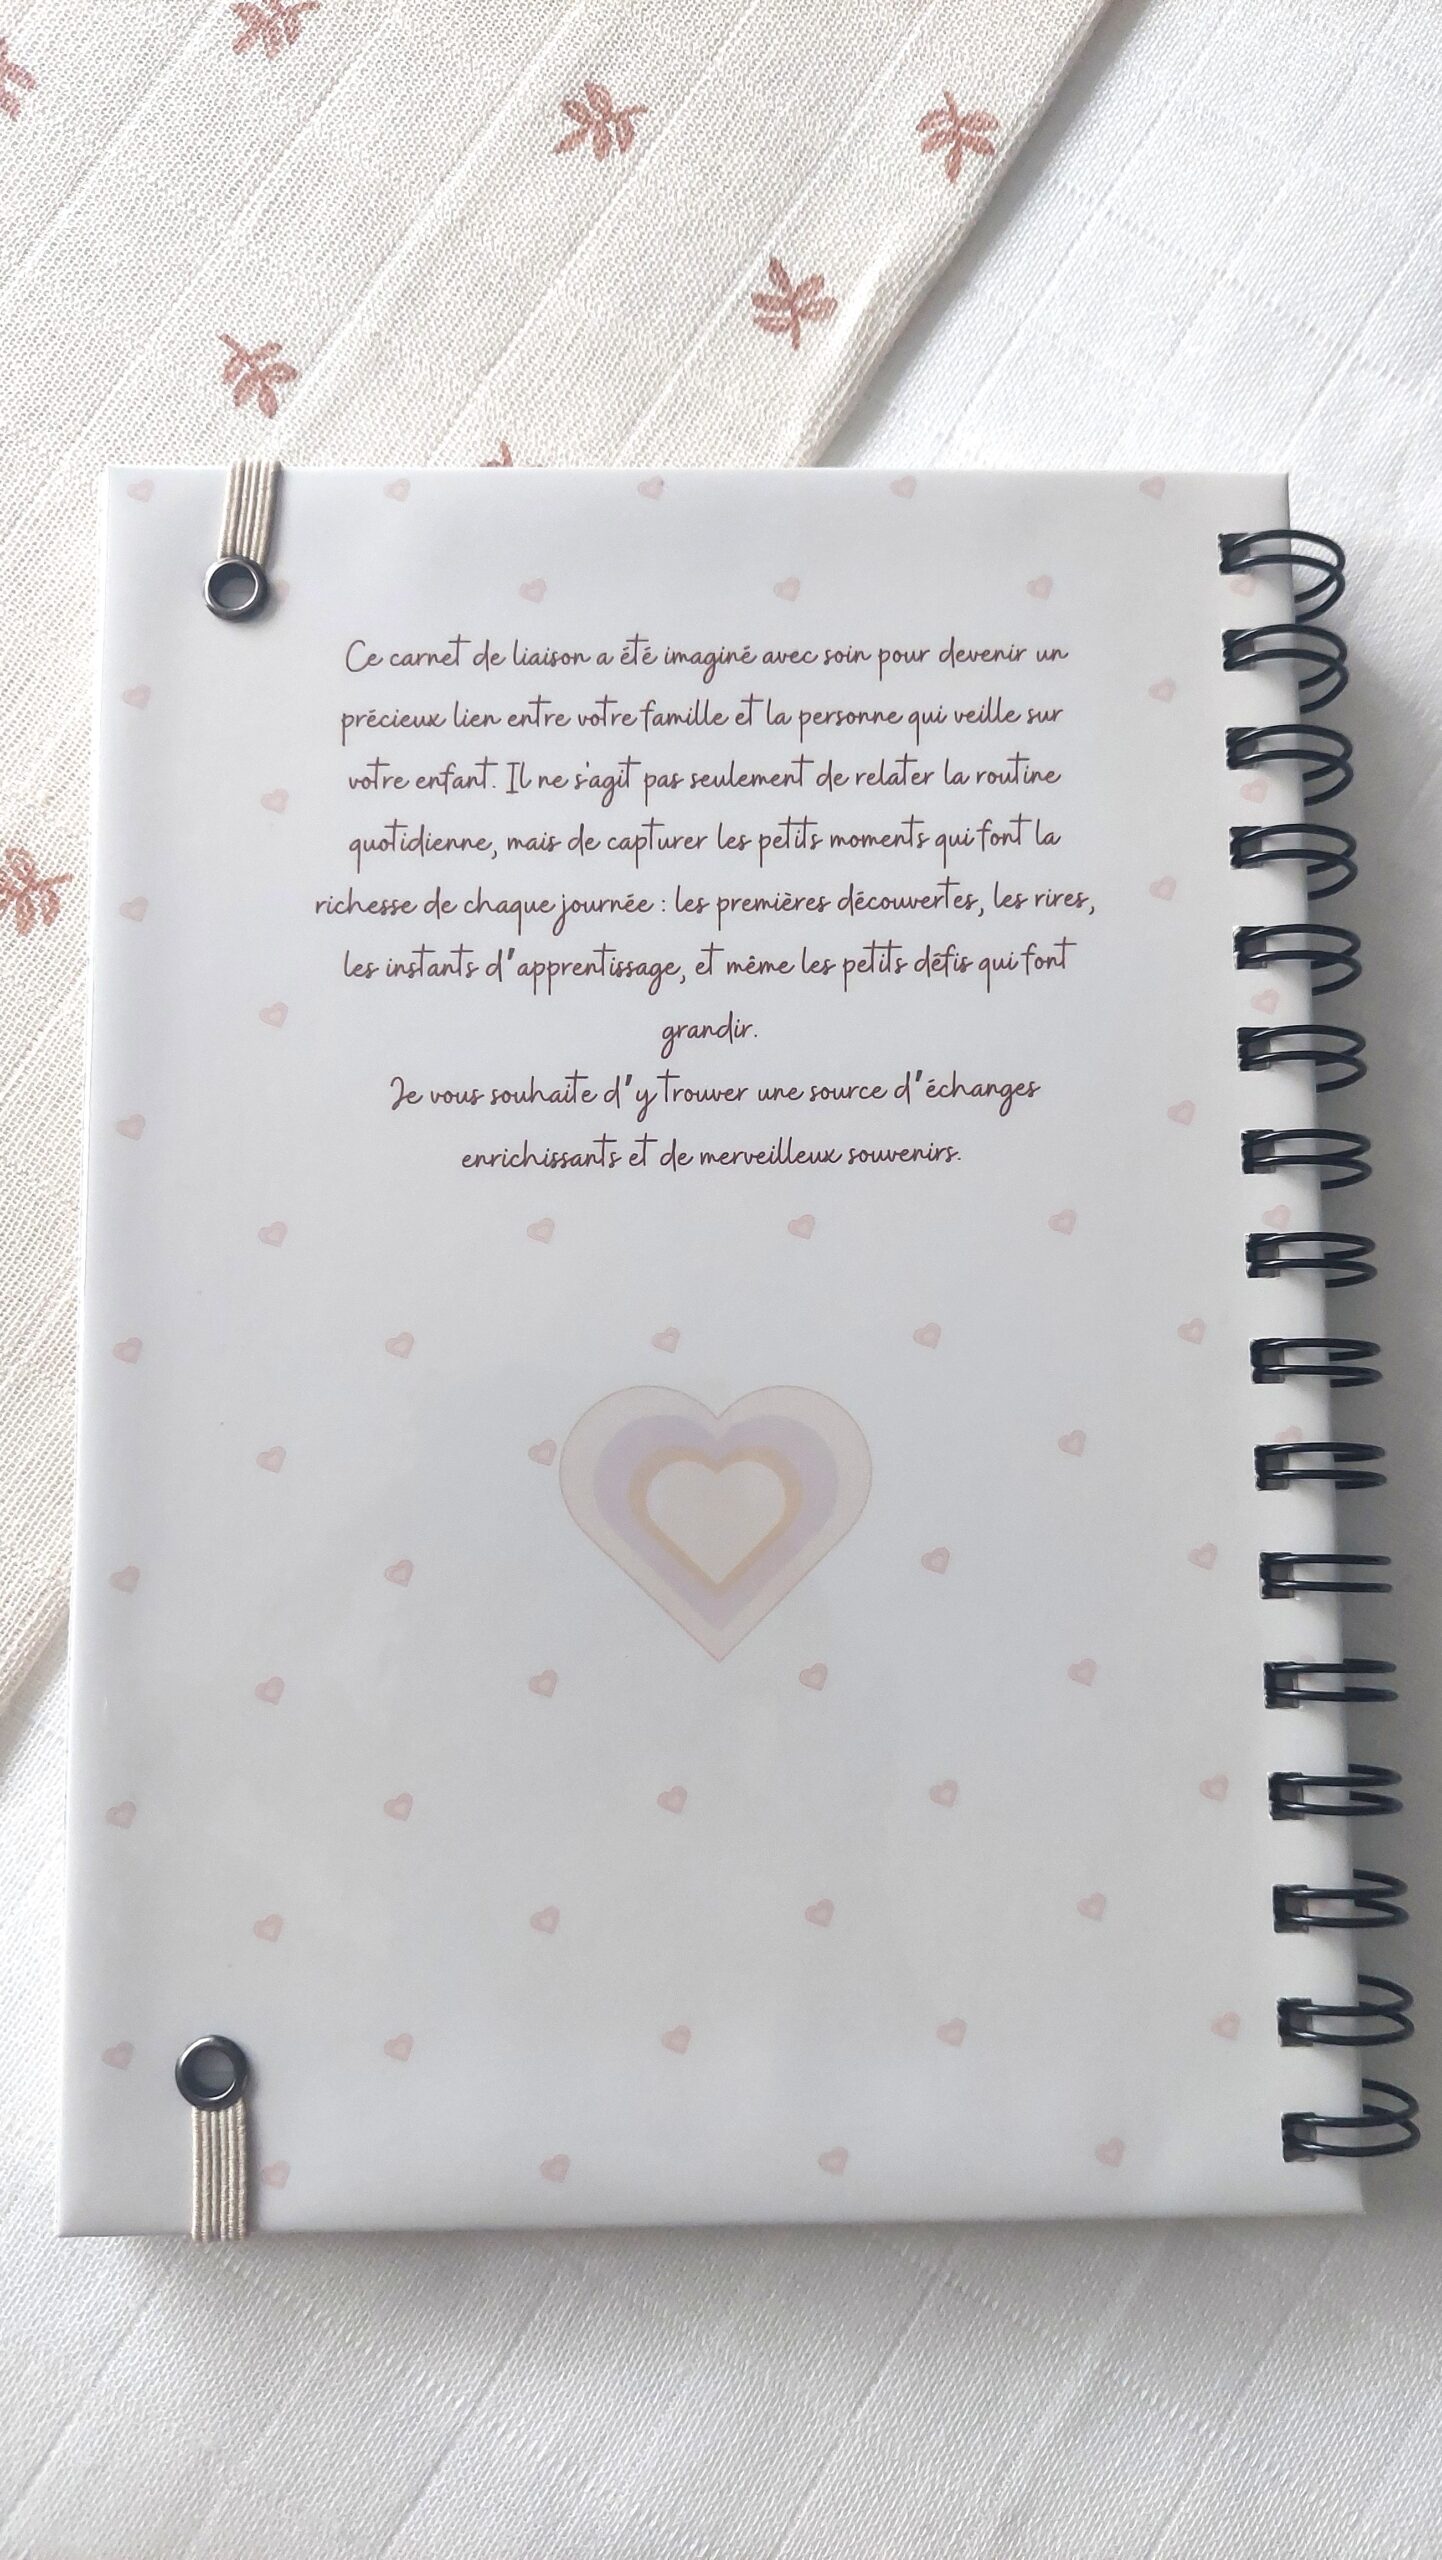 Ce carnet de liaison a été imaginé avec soin pour devenir un
précieux lien entre votre famille et la personne qui veille sur
votre enfant. Il ne s'agit pas seulement de relater la routine
quotidienne, mais de capturer les petits moments qui font la
richesse de chaque journée : les premières découvertes, les rires,
les instants d'apprentissage, et même les petits défis qui font
grandir.
Je vous souhaite d'y trouver une source d'échanges
enrichissants et de merveilleux souvenirs.